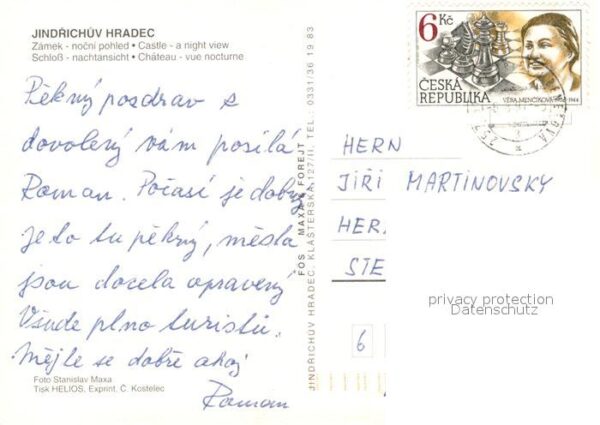 JINDŘICHŮV HRADEC
Zámek - noční pohled • Castle - a night view
Schloß - nachtansicht • Château - vue nocturne
Pěkný pozdrav s
dovolený vám posílá
Roman. Počasí je dobrý
je to tu pěkný, města
jsou docela opravený
Všude plno turistů.
Mějte se dobře ahoj
Roman
Foto Stanislav Maxa
Tisk HELIOS, Exprint, Č. Kostelec
FOS MAXA & FOREJT
JINDŘICHŮV HRADEC, KLÁŠTERSKÁ 127/II, TEL.: 0331/36 19 83
6 Kč
ČESKÁ
REPUBLIKA
VĚRA MENČÍKOVÁ 1906-1944
HERN
JIŘÍ MARTINOVSKY
HER
STE
6
privacy protection
Datenschutz